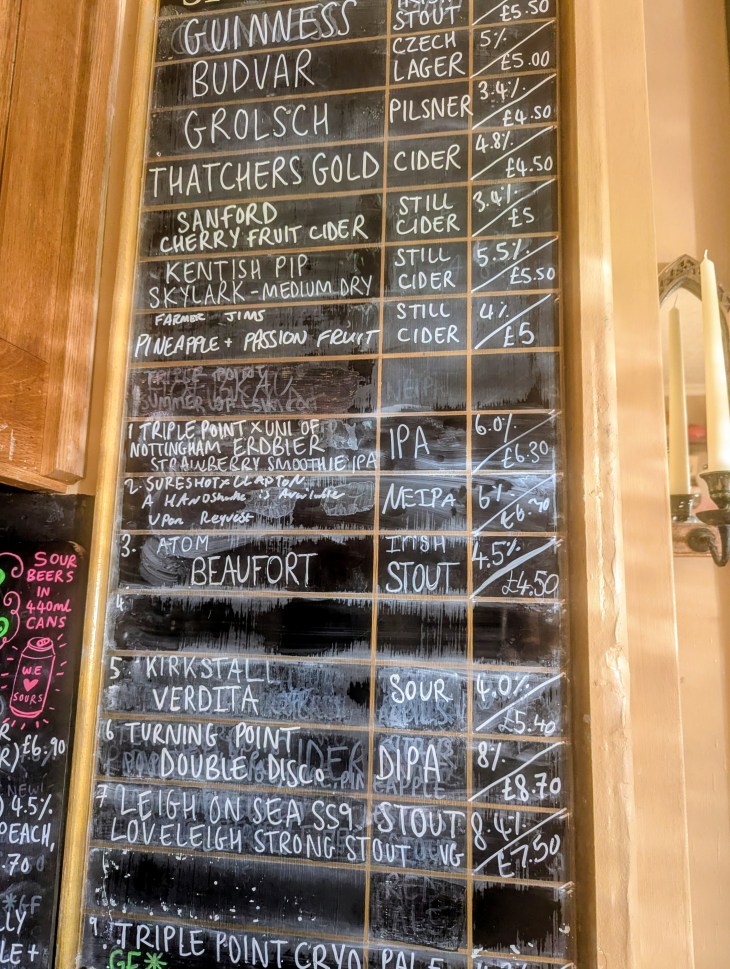 GUINNESS STOUT £5.50
BUDVAR CZECH LAGER 5% £5.00
GROLSCH PILSNER 3.4% £4.50
THATCHERS GOLD CIDER 4.8% £4.50
SANFORD
CHERRY FRUIT CIDER STILL CIDER 3.4% £5
KENTISH PIP
SKYLARK - MEDIUM DRY STILL CIDER 5.5% £5.50
FARMER JIMS
PINEAPPLE + PASSION FRUIT STILL CIDER 4% £5
1 TRIPLE POINT X UNI OF
NOTTINGHAM ERDBIER
STRAWBERRY SMOOTHIE IPA IPA 6.0% £6.30
2. SURESHOT X CLAPTON
A HANDSHAKE is Available
Upon Request NEIPA 6%
3. ATOM
BEAUFORT IRISH STOUT 4.5% £4.50
4
5. KIRKSTALL
VERDITA SOUR 4.0% £5.40
6 TURNING POINT
DOUBLE DISCO DIPA 8% £8.70
7 LEIGH ON SEA SS9
LOVELEIGH STRONG STOUT VG STOUT 8.4% £7.50
9. TRIPLE POINT CRYO PALE
GF*
SOUR
BEERS
IN
440ml
CANS
WE
♥
SOURS
£6.90
NEW!
4.5%
PEACH,
.70
*GF